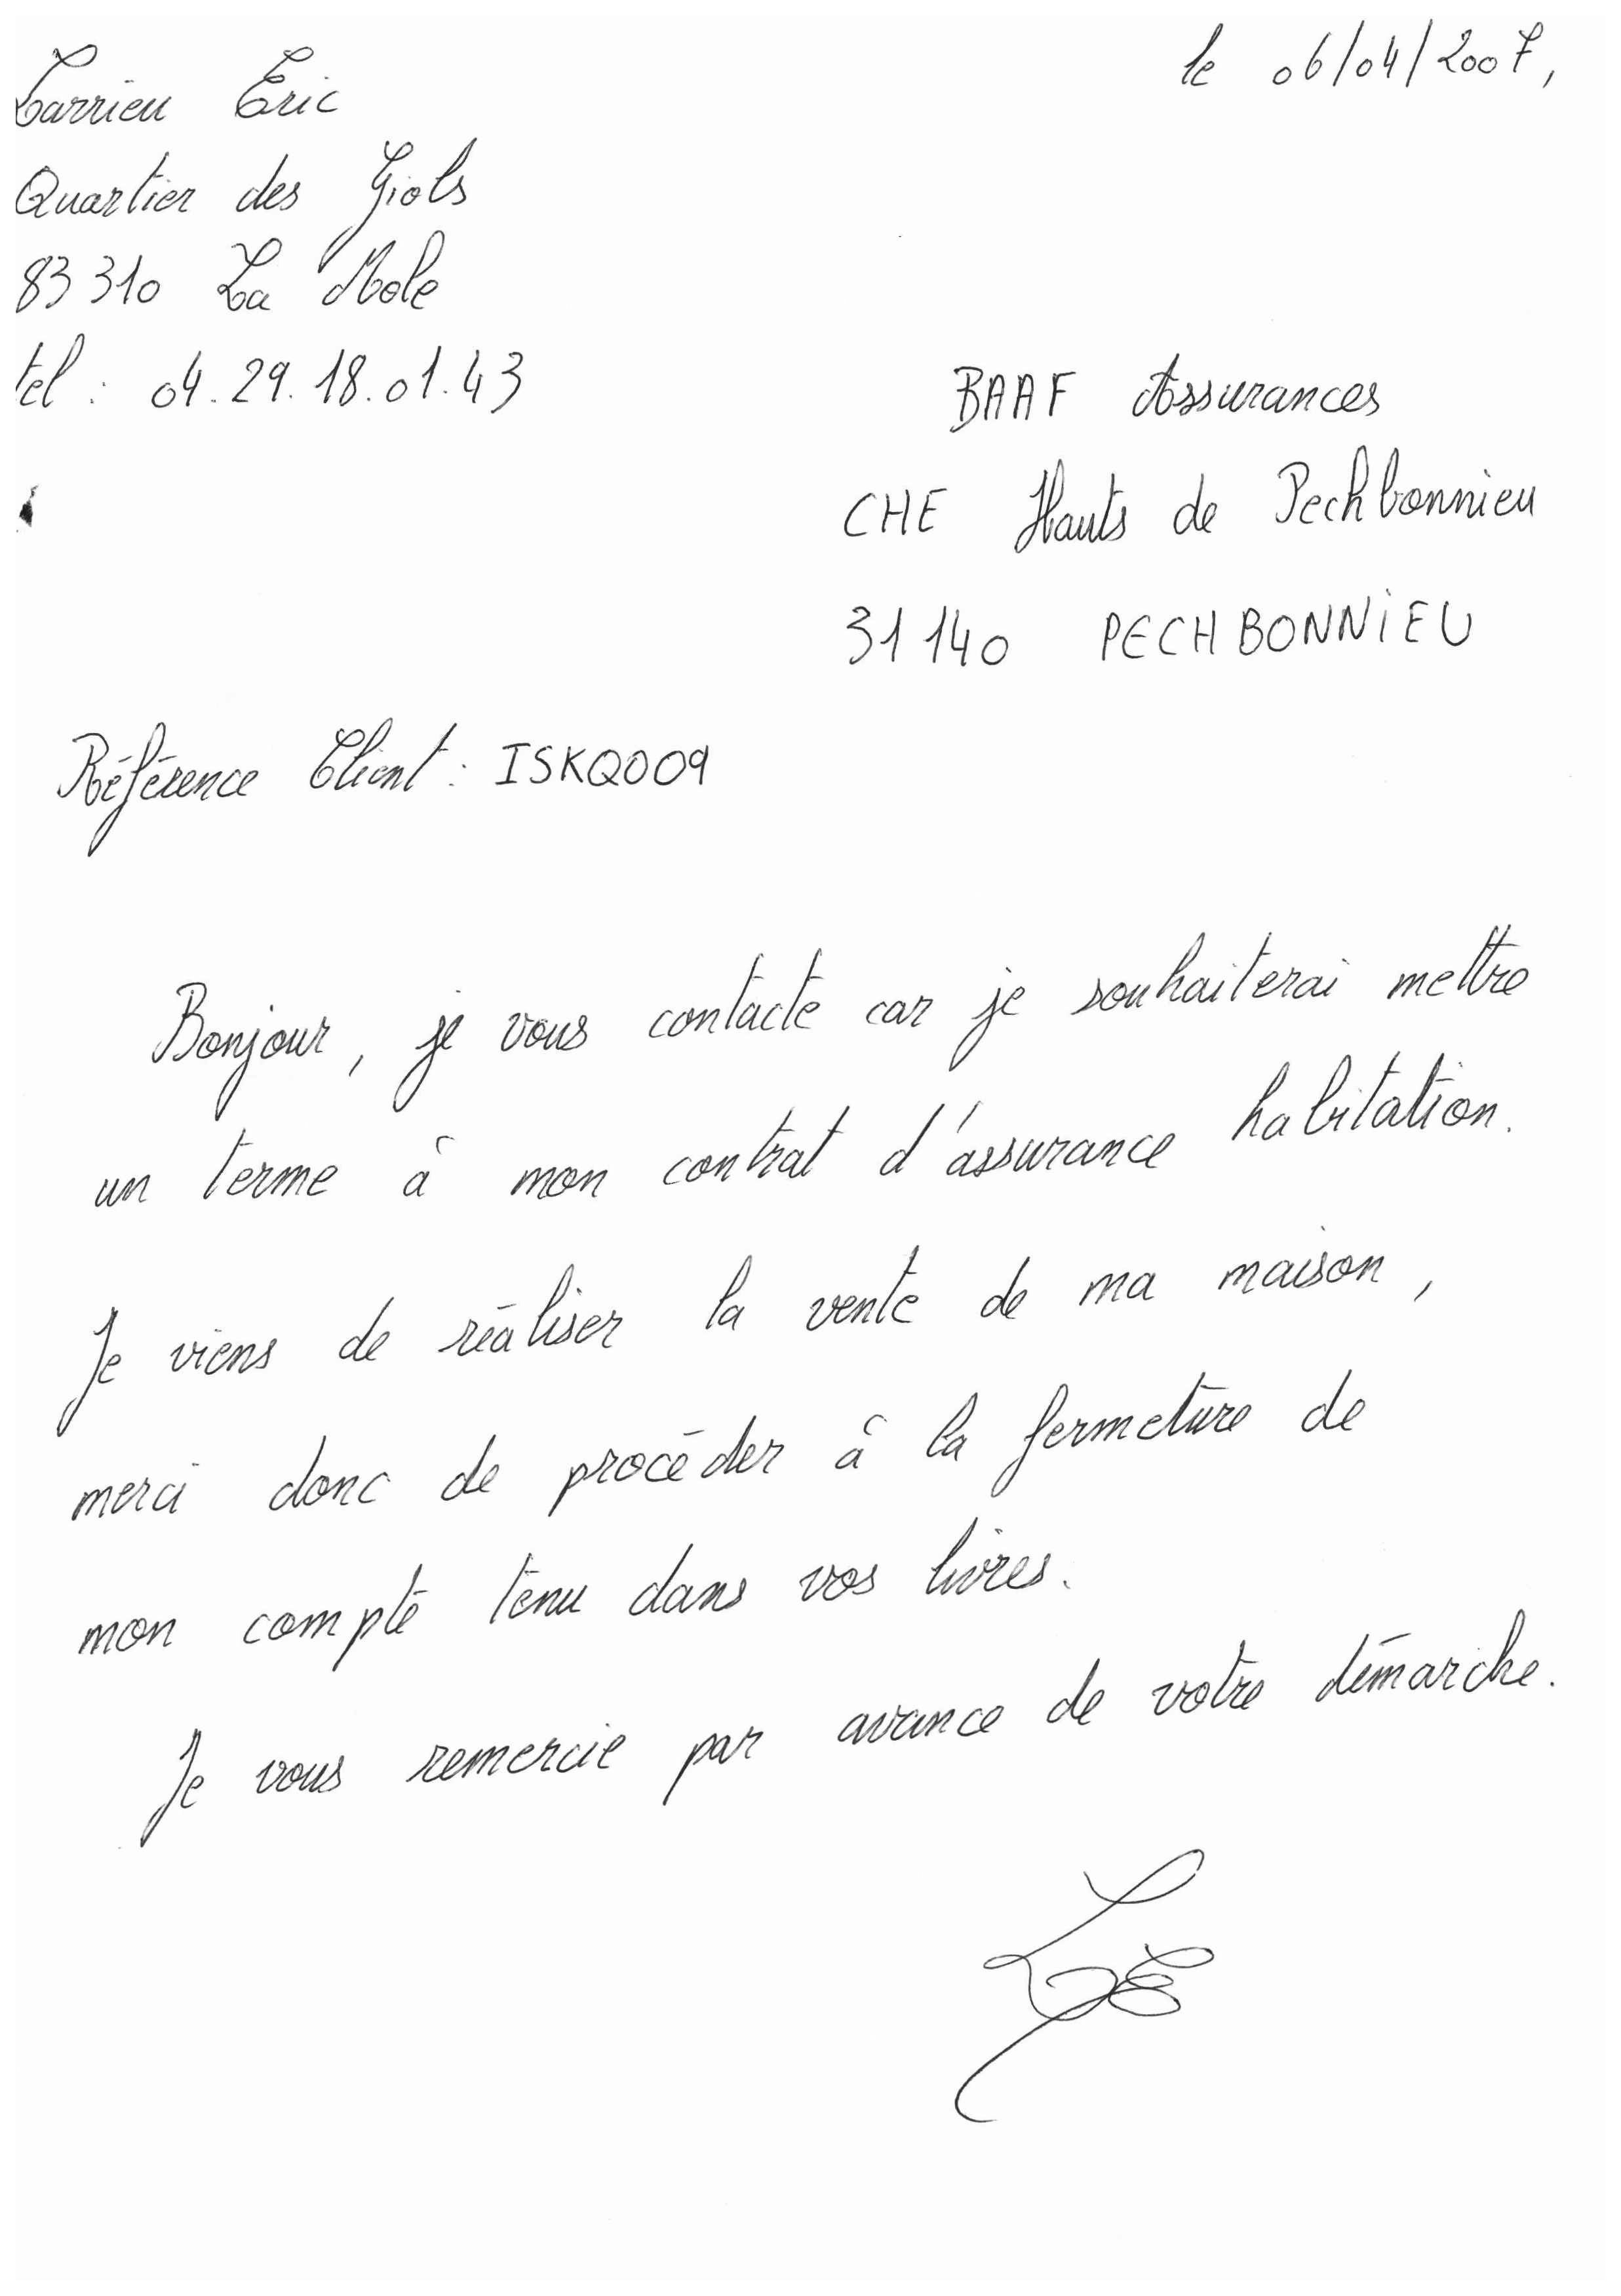 Larrieu Eric
le 06/04/2007,
Quartier des Giols
83310 La Mole
tel : 04.29.18.01.43
BAAF Assurances
CHE Hauts de Pechbonnieu
31140 PECHBONNIEU
Référence Client : ISKQ009
Bonjour, je vous contacte car je souhaiterai mettre
un terme à mon contrat d'assurance habitation.
Je viens de réaliser la vente de ma maison,
merci donc de procéder à la fermeture de
mon compte tenu dans vos livres.
Je vous remercie par avance de votre démarche.
LE